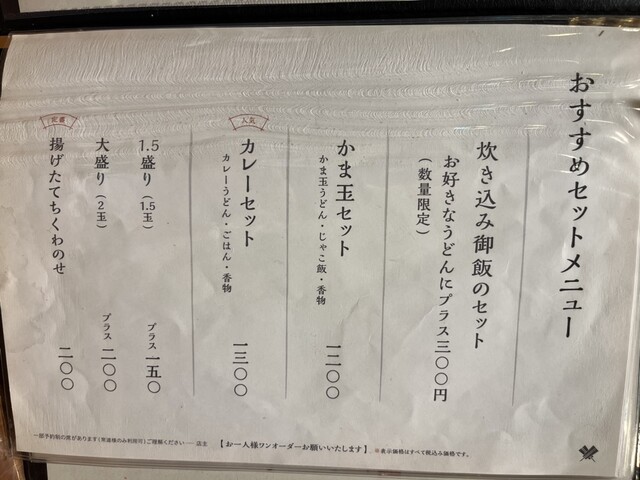 おすすめセットメニュー
炊き込み御飯のセット
お好きなうどんにプラス三〇〇円
（数量限定）
かま玉セット
かま玉うどん・じゃこ飯・香物
一二〇〇
人気
カレーセット
カレーうどん・ごはん・香物
一三〇〇
1.5盛り（1.5玉）
プラス 一五〇
大盛り（2玉）
プラス 二〇〇
定番
揚げたてちくわのせ
二〇〇
一部予約制の席があります（常連様のみ利用可）ご理解ください── 店主
【お一人様ワンオーダーお願いいたします】
※表示価格はすべて税込み価格です。